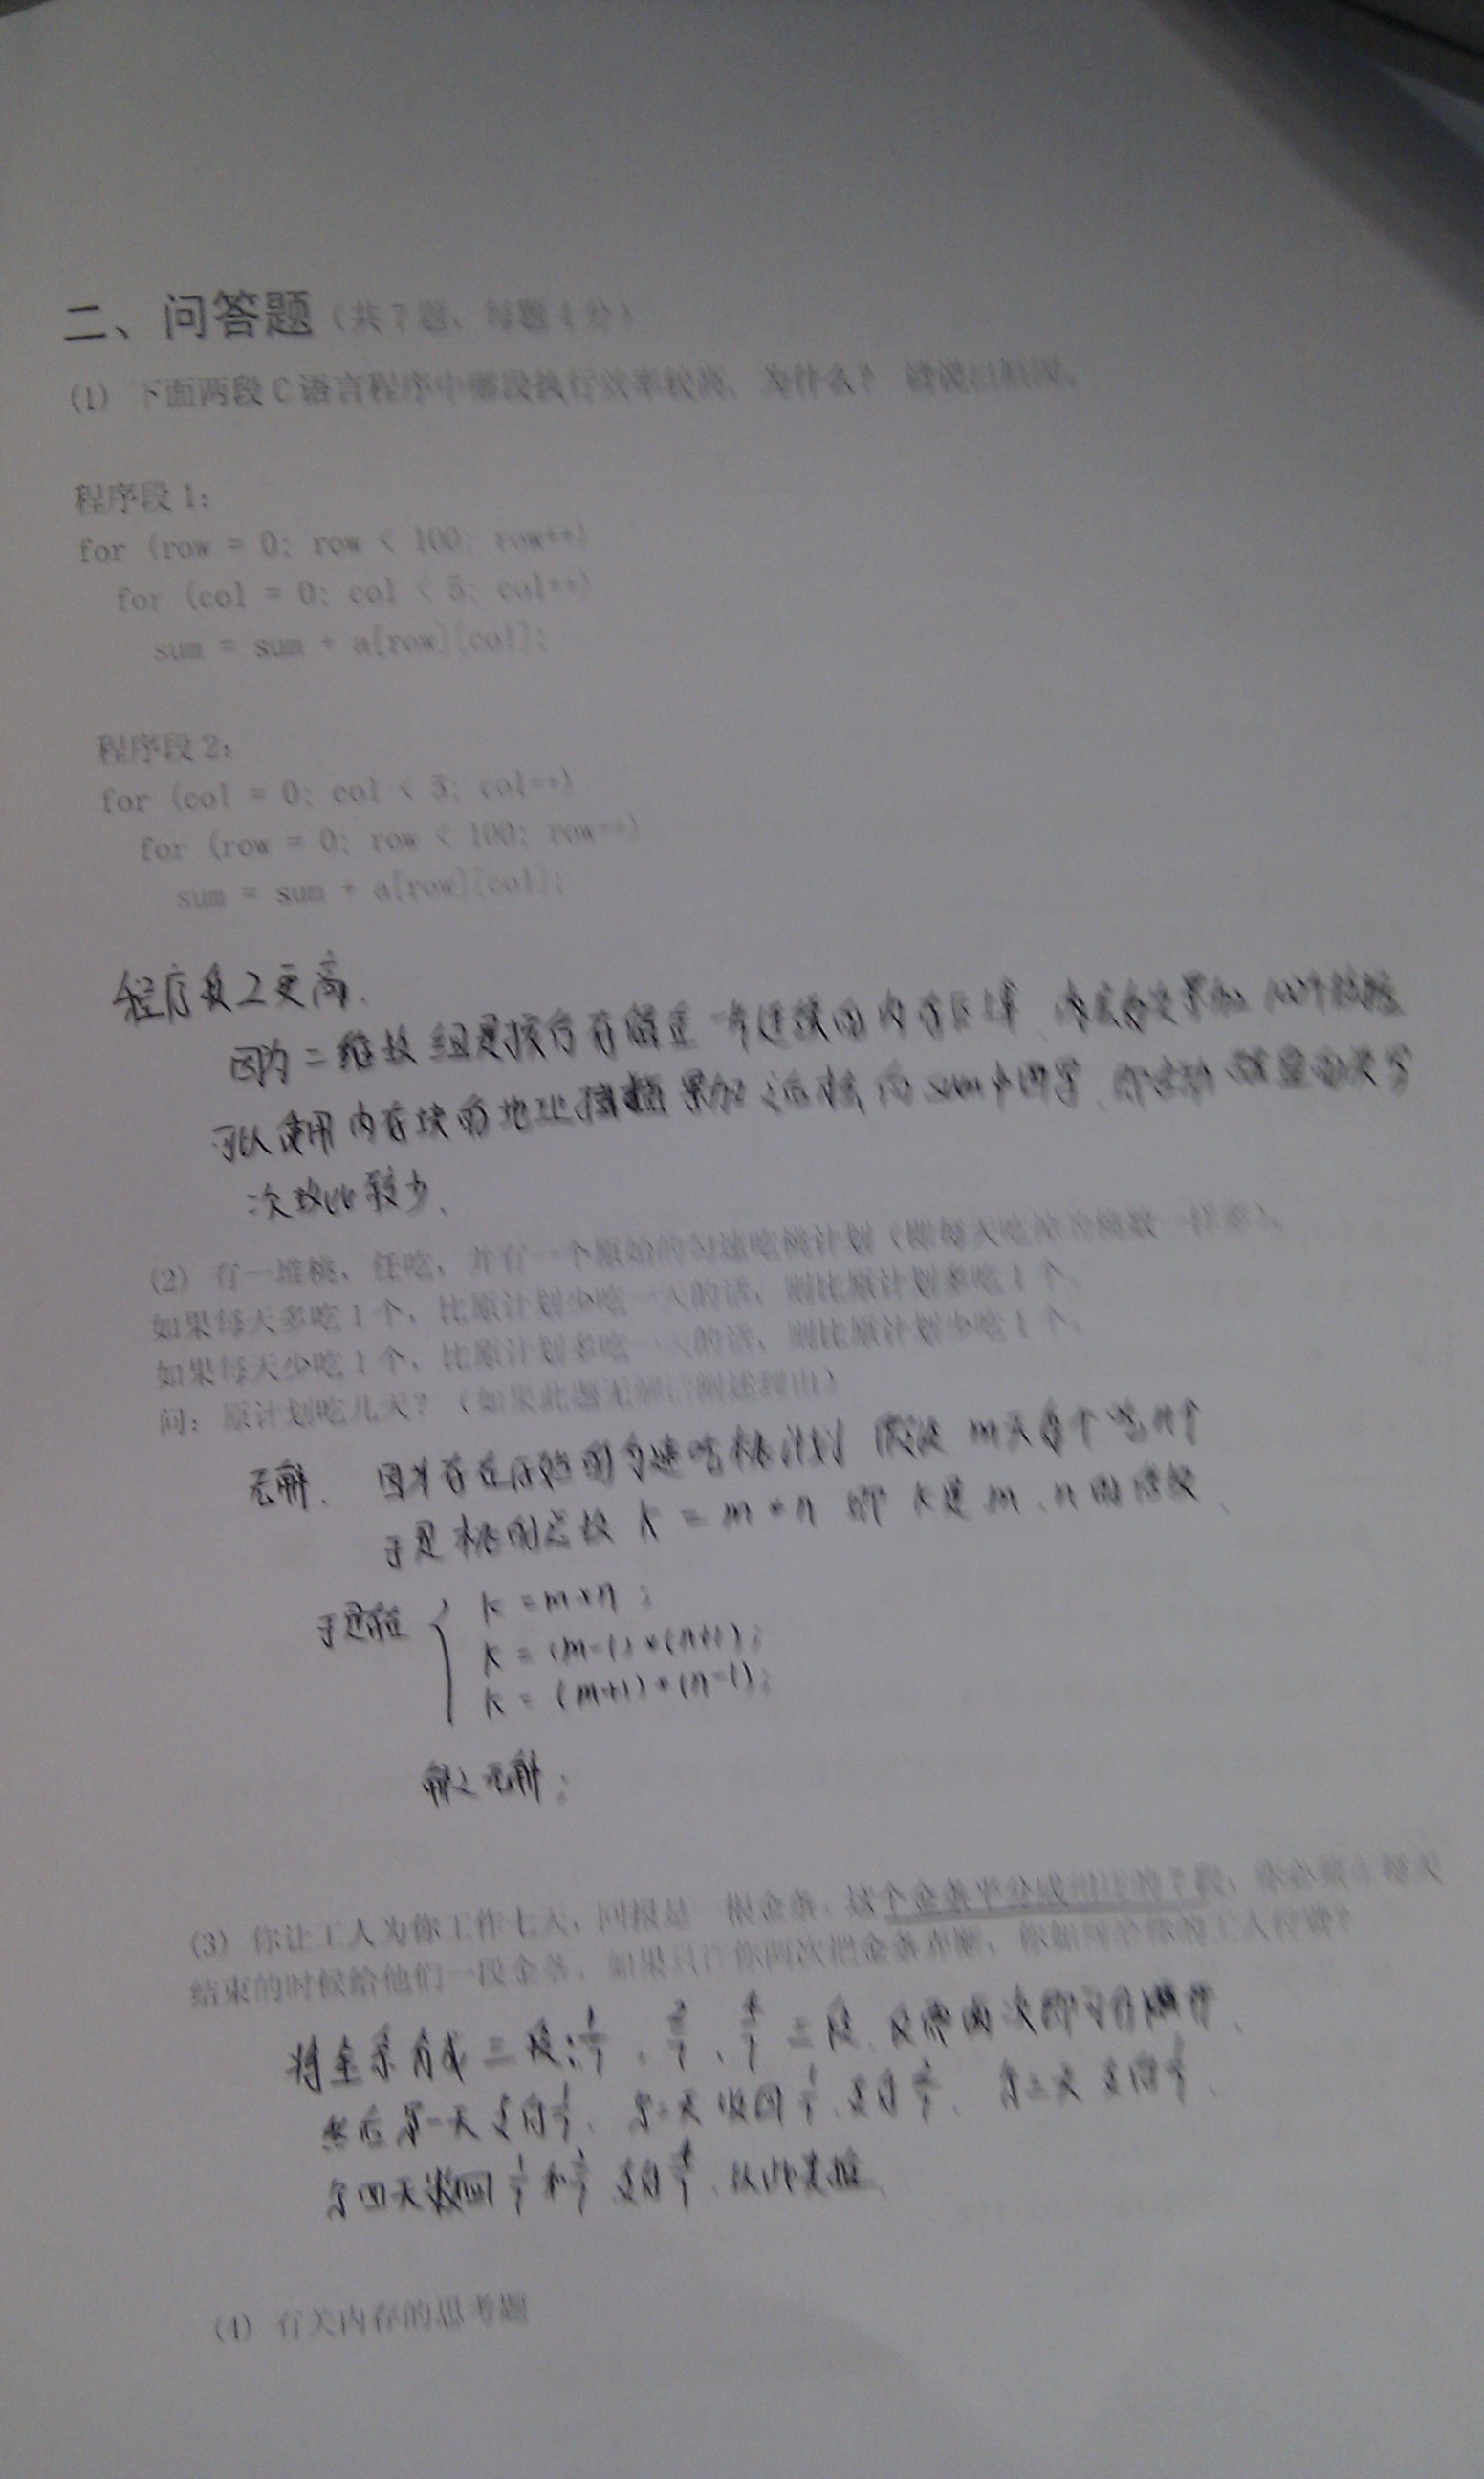 二、问答题（共7题，每题4分）
(1) 下面两段C语言程序中哪段执行效率较高，为什么？请说出原因。
程序段1：
for (row = 0; row < 100; row++)
for (col = 0; col < 5; col++)
sum = sum + a[row][col];
程序段2：
for (col = 0; col < 5; col++)
for (row = 0; row < 100; row++)
sum = sum + a[row][col];
程序段2更高.
因为二维数组是按行存储在一片连续的内存区域
可以使用内存块的地址 累加之后 向sum中
次数比较少、
(2) 有一堆桃，任吃，并有一个原始的匀速吃桃计划（即每天吃 桃数一样多）。
如果每天多吃1个，比原计划少吃一天的话，则比原计划多吃1个。
如果每天少吃1个，比原计划多吃一天的话，则比原计划少吃1个。
问：原计划吃几天？（如果此题无解请阐述理由）
无解、 因为存在原始的匀速吃桃计划 假设 m天每个吃n个
于是桃的总数 K = m*n 即 K是m、n的倍数、
于是有 K = m*n;
K = (m-1)*(n+1);
K = (m+1)*(n-1);
解之无解;
(3) 你让工人为你工作七天，回报是一根金条，这个金条平分成相连的7段，你必须在每天
结束的时候给他们一段金条，如果只许你两次把金条弄断，你如何给你的工人付费？
将金条分成三段:1/7、2/7、4/7 三段、只需两次即可
然后第一天支付1/7、第二天收回1/7、支付2/7、第三天支付1/7、
第四天收回1/7和2/7 支付4/7、以此类推、
(4) 有关内存的思考题